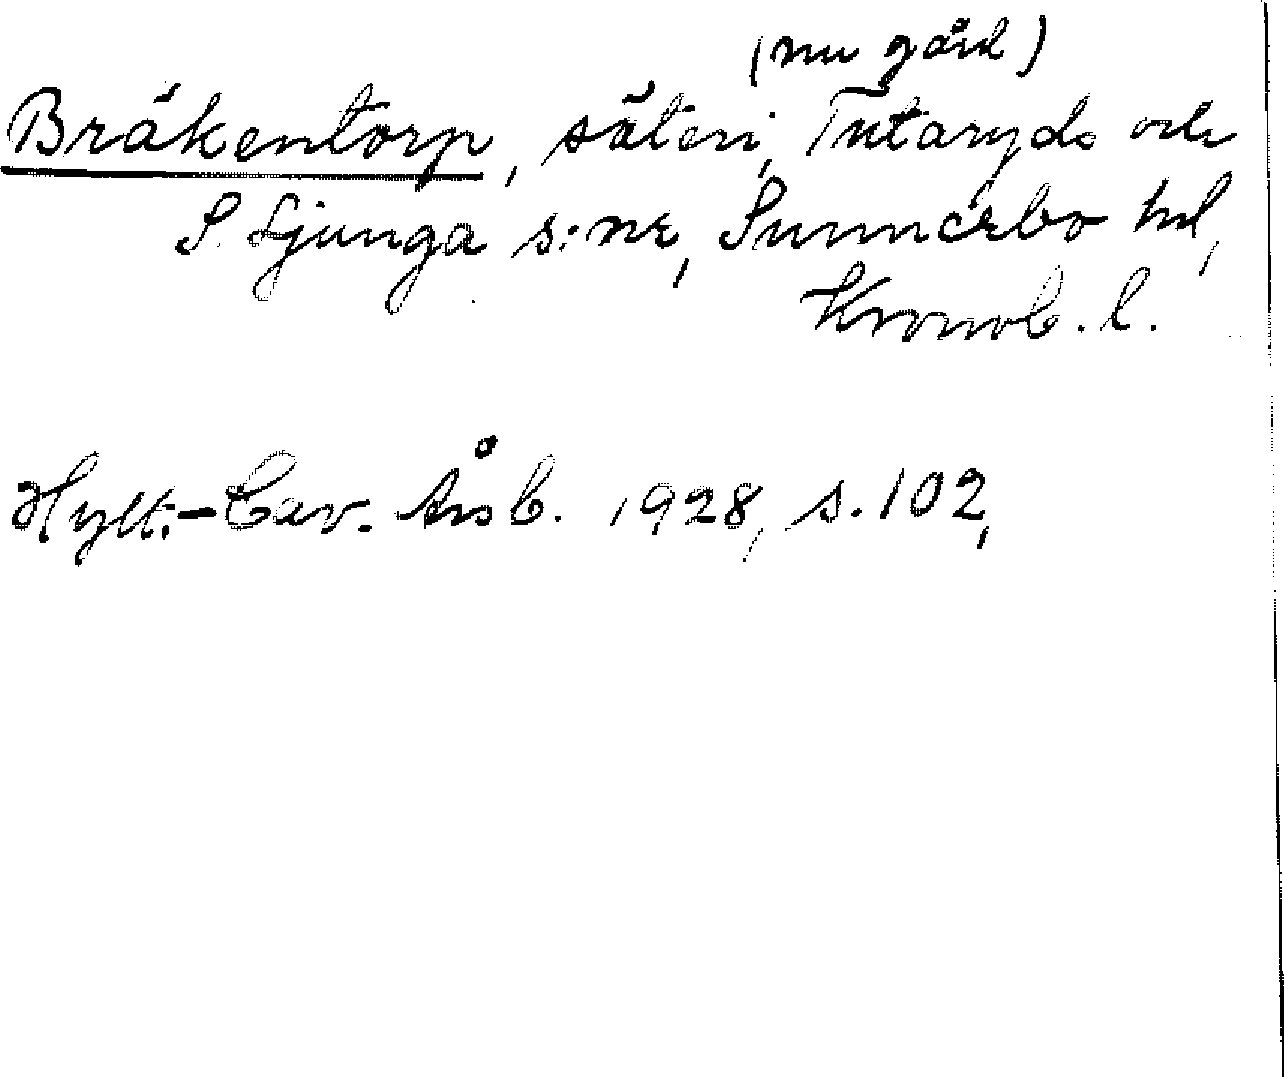 (nu gård)
Bräkentorp, säteri, Tutaryds och
S. Ljunga s:nr, Sunnerbo hd,
Kronob. l.
Hylt.-Cav. Årsb. 1928, s. 102,